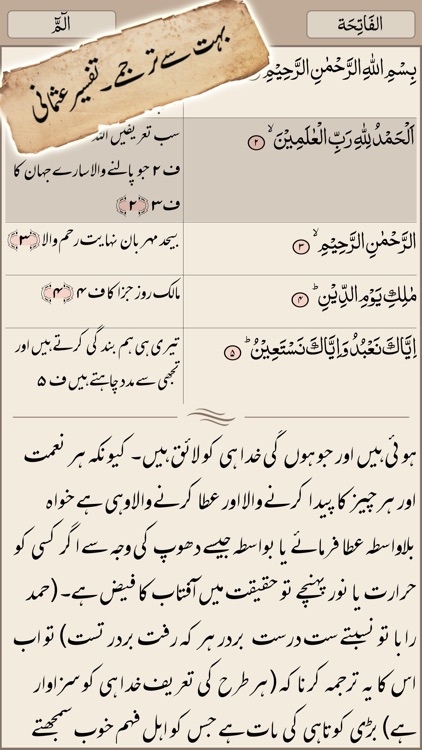 الفَاتِحَة
الٓمّٓ
بہت سے ترجمے۔ تفسیر عثمانی
بِسْمِ اللهِ الرَّحْمٰنِ الرَّحِيْمِ
اَلْحَمْدُ لِلّٰهِ رَبِّ الْعٰلَمِيْنَ ۙ ۲
سب تعریفیں اللہ
ف ۲ جو پالنے والا سارے جہان کا
ف ۳ ﴿۲﴾
الرَّحْمٰنِ الرَّحِيْمِ ۙ ۳
بیحد مہربان نہایت رحم والا ﴿۳﴾
مٰلِكِ يَوْمِ الدِّيْنِ ؕ ۴
مالک روز جزا کا ف ۴ ﴿۴﴾
اِيَّاكَ نَعْبُدُ وَاِيَّاكَ نَسْتَعِيْنُ ؕ ۵
تیری ہی ہم بندگی کرتے ہیں اور
تجھی سے مدد چاہتے ہیں ف ۵
ہوئی ہیں اور جو ہوں گی خدا ہی کو لائق ہیں۔ کیونکہ ہر نعمت
اور ہر چیز کا پیدا کرنے والا اور عطا کرنے والا وہی ہے خواہ
بلاواسطہ عطا فرمائے یا بواسطہ جیسے دھوپ کی وجہ سے اگر کسی کو
حرارت یا نور پہنچے تو حقیقت میں آفتاب کا فیض ہے۔ (حمد
را با تو نسبتے ست درست بردر ہر کہ رفت بردر تست) تو اب
اس کا یہ ترجمہ کرنا کہ (ہر طرح کی تعریف خدا ہی کو سزاوار
ہے) بڑی کوتاہی کی بات ہے جس کو اہل فہم خوب سمجھتے